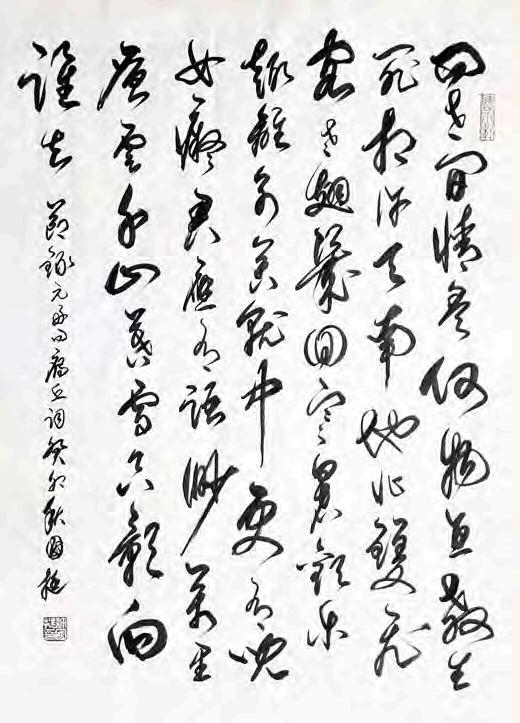 问世間情是何物直教生
死相许天南地北雙飛
客老翅幾回寒暑歡乐
趣離别苦就中更有兒
女癡君應有語渺萬里
層雲千山暮雪只影向
誰去
節錄元好问雁丘詞癸卯秋國挺